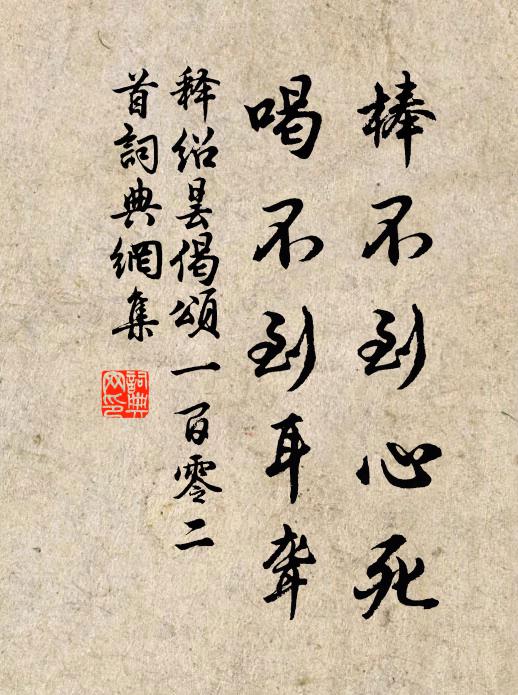 棒不到心死
喝不到耳聋
释绍昙偈頌一百零二
首詞典網集
詞典
网印